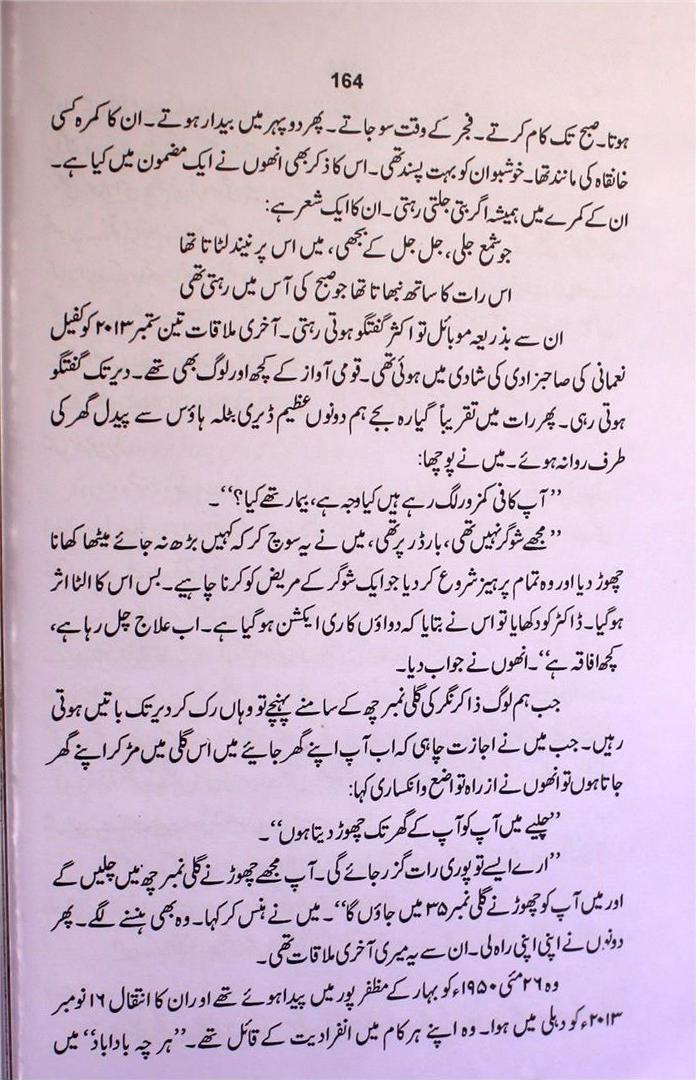 164
ہوتا۔ صبح تک کام کرتے۔ فجر کے وقت سو جاتے۔ پھر دوپہر میں بیدار ہوتے۔ ان کا کمرہ کسی
خانقاہ کی مانند تھا۔ خوشبو ان کو بہت پسند تھی۔ اس کا ذکر بھی انھوں نے ایک مضمون میں کیا ہے۔
ان کے کمرے میں ہمیشہ اگر بتی جلتی رہتی۔ ان کا ایک شعر ہے:
جو شمع جلی، جل جل کے بجھی، میں اس پر نیند لٹاتا تھا
اس رات کا ساتھ نبھاتا تھا جو صبح کی آس میں رہتی تھی
ان سے بذریعہ موبائل تو اکثر گفتگو ہوتی رہتی۔ آخری ملاقات تین ستمبر ۲۰۱۳ کو کفیل
نعمانی کی صاحبزادی کی شادی میں ہوئی تھی۔ قومی آواز کے کچھ اور لوگ بھی تھے۔ دیر تک گفتگو
ہوتی رہی۔ پھر رات میں تقریباً گیارہ بجے ہم دونوں عظیم ڈیری بٹلہ ہاؤس سے پیدل گھر کی
طرف روانہ ہوئے۔ میں نے پوچھا:
”آپ کافی کمزور لگ رہے ہیں کیا وجہ ہے، بیمار تھے کیا؟“۔
”مجھے شوگر نہیں تھی، بارڈر پر تھی، میں نے یہ سوچ کر کہ کہیں بڑھ نہ جائے میٹھا کھانا
چھوڑ دیا اور وہ تمام پرہیز شروع کر دیا جو ایک شوگر کے مریض کو کرنا چاہیے۔ بس اس کا الٹا اثر
ہو گیا۔ ڈاکٹر کو دکھایا تو اس نے بتایا کہ دواؤں کا ری ایکشن ہو گیا ہے۔ اب علاج چل رہا ہے،
کچھ افاقہ ہے“۔ انھوں نے جواب دیا۔
جب ہم لوگ ذاکر نگر کی گلی نمبر چھ کے سامنے پہنچے تو وہاں رک کر دیر تک باتیں ہوتی
رہیں۔ جب میں نے اجازت چاہی کہ اب آپ اپنے گھر جائیے میں اس گلی میں مڑ کر اپنے گھر
جاتا ہوں تو انھوں نے از راہ تواضع و انکساری کہا:
”چلیے میں آپ کو آپ کے گھر تک چھوڑ دیتا ہوں“۔
”ارے ایسے تو پوری رات گزر جائے گی۔ آپ مجھے چھوڑنے گلی نمبر چھ میں چلیں گے
اور میں آپ کو چھوڑنے گلی نمبر ۳۵ میں جاؤں گا“۔ میں نے ہنس کر کہا۔ وہ بھی ہنسنے لگے۔ پھر
دونوں نے اپنی اپنی راہ لی۔ ان سے یہ میری آخری ملاقات تھی۔
وہ ۲۶ مئی ۱۹۵۰ء کو بہار کے مظفر پور میں پیدا ہوئے تھے اور ان کا انتقال ۱۶ نومبر
۲۰۱۳ء کو دہلی میں ہوا۔ وہ اپنے ہر کام میں انفرادیت کے قائل تھے۔ ”ہر چہ بادا باد“ میں